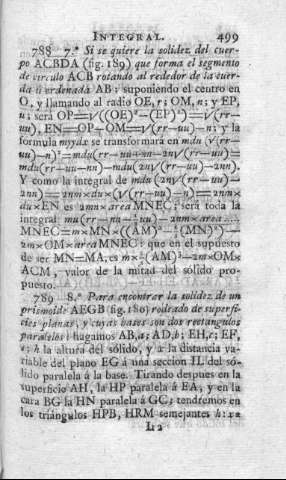 INTEGRAL. 499
788 7.º Si se quiere la solidez del cuer-
po ACBDA (fig. 189) que forma el segmento
de circulo ACB rotando al rededor de la cuer-
da ú ordenada AB: suponiendo el centro en
O, y llamando al radio OE, r; OM, n; y EP,
u; será OP=√((OE)²-(EP)²)=√(rr-
uu), EN=OP-OM=√(rr-uu)-n; y la
formula mydx se transformará en mdu (√(rr-
uu)-n)²=mdu(rr-uu+nn-2n√(rr-uu))=
mdu(rr-uu-nn)-mdu(2n√(rr-uu)-2nn).
Y como la integral de mdu (2n√(rr-uu)-
2nn)=2nm×du×(√(rr-uu)-n)=2nm×
du×EN es 2mn×area MNEC; será toda la
integral mu(rr-nn-⅓uu)-2nm×area ....
MNEC=m×MN×((AM)²-⅓(MN)²)-
2m×OM×area MNEC: que en el supuesto
de ser MN=MA, es m×⅔(AM)³-2m×OM×
ACM, valor de la mitad del sólido pro-
puesto.
789 8.º Para encontrar la solidez de un
prismoide AEGB (fig. 180) rodeado de superfi-
cies planas, y cuyas bases son dos rectangulos
paralelos: hagamos AB, a; AD, b; EH, c; EF,
e; h la altura del sólido, y x la distancia va-
riable del plano EG á una seccion IL del só-
lido paralela á la base. Tirando despues en la
superficie AH, la HP paralela á EA, y en la
cara BG la HN paralela á GC; tendremos en
los triángulos HPB, HRM semejantes h:x::
Ll 2